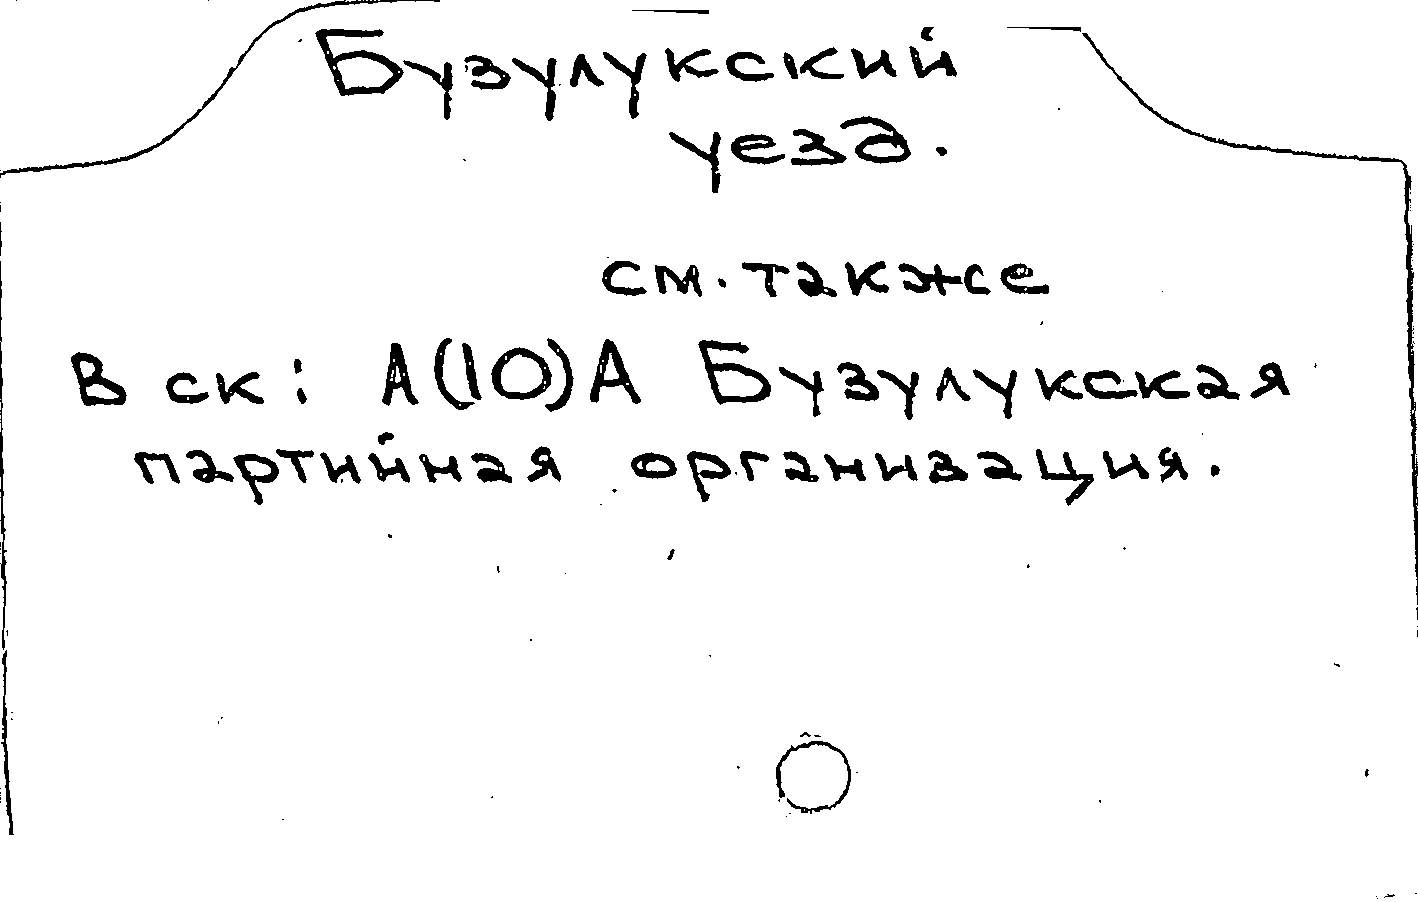 Бузулукский
уезд.
см. также
В ск: А(10)А Бузулукская
партийная организация.